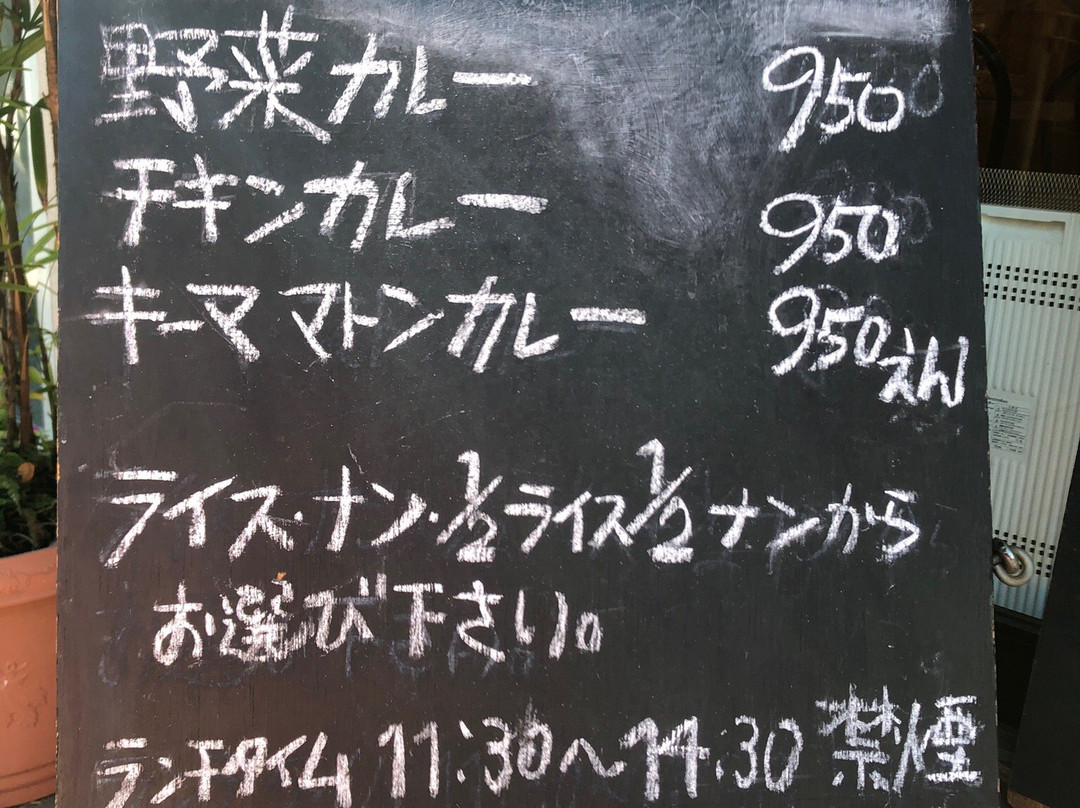 野菜カレー 950
チキンカレー 950
キーママトンカレー 950えん
ライス・ナン・1/2ライス1/2ナンから
お選び下さい。
ランチタイム 11:30〜14:30 禁煙